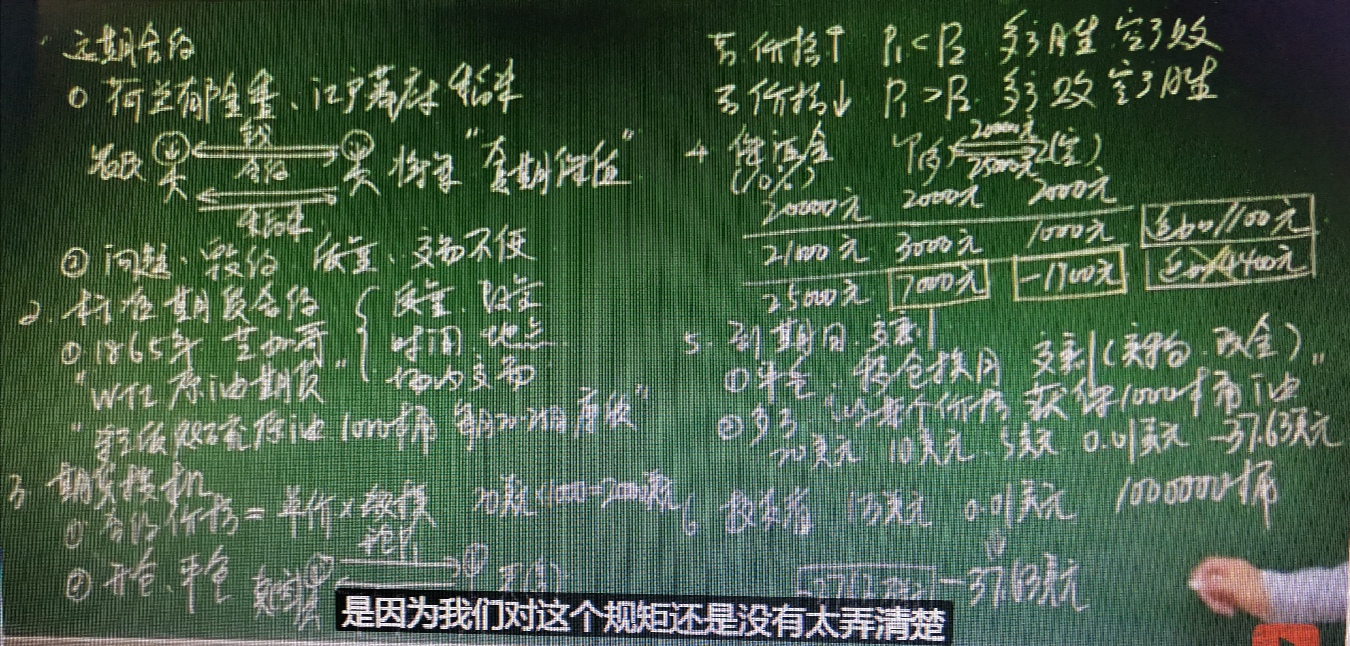 远期合约
① 荷兰郁金香、江户幕府
钱
农民 合约 商人 "套期保值"
② 问题：毁约、质量、交易不便
2. 标准期货合约 质量、数量
① 1865年 芝加哥 时间、地点
"WTI 原油期货" 场内交易
原油 1000桶
3. 期货投机
① 合约价格 = 单价×数
20美元×1000=20000美元
② 开仓、平仓
若价格↑ P₁<P₂ 多了胜 空了败
若价格↓ P₁>P₂ 多了败 空了胜
4 保证金 甲(多) 20000元 乙(空)
(10%) 25000元
20000元 2000元 2000元
21000元 3000元 1000元 追加1100元
25000元 7000元 -1700元 元
5. 到期日 交割
① 平仓、移仓换月 交割(实物、现金)
② 多了 "以某个价格 获得1000桶油"
20美元 10美元 5美元 0.01美元 -37.63美元
6 抄底者 13美元 0.01美元 1000000桶
-37.63美元
是因为我们对这个规矩还是没有太弄清楚